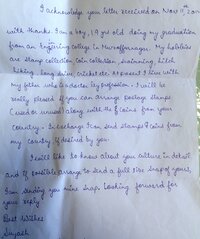 I acknowledge your letter received on Nov 11th 200
with thanks. I am a boy, 19 yrs old doing my graduation
from an Engineering College in Muzaffarnagar. My hobbies
are stamp collection, Coin collection, swimming, hitch
hiking, long drive, cricket etc. At present I live with
my father who is a doctor by profession. I will be
really pleased if you can arrange Postage stamps,
(used or unused) along with the coins from your
Country. In exchange I can send stamps & coins from
my Country if desired by you.
I would like to know about your culture in detail
and if possible arrange to send a full size snap of yours,
I am sending you mine snap. Looking forward for
your reply.
Best Wishes
Suyash